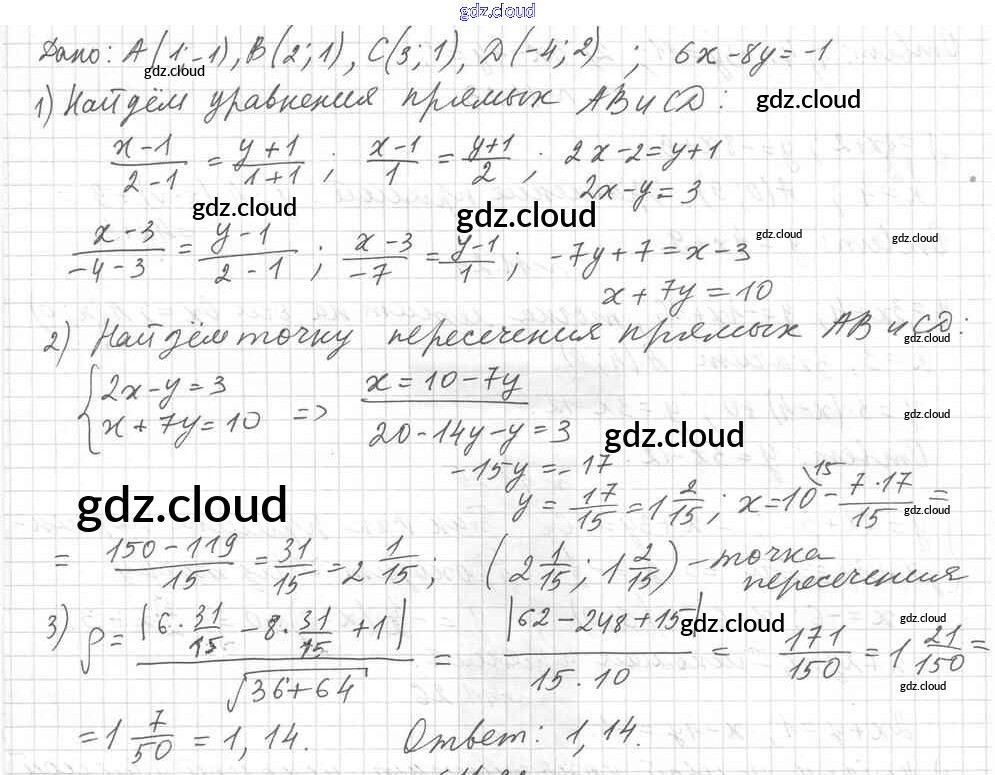 gdz.cloud
gdz.cloud
Дано: A(1;-1), B(2;1), C(3;1), D(-4;2) ; 6x-8y=-1
gdz.cloud
1) Найдём уравнения прямых AB и CD:
gdz.cloud
(x-1)/(2-1) = (y+1)/(1+1) ; (x-1)/1 = (y+1)/2 ; 2x-2=y+1
2x-y=3
gdz.cloud
gdz.cloud
gdz.cloud
gdz.cloud
(x-3)/(-4-3) = (y-1)/(2-1) ; (x-3)/(-7) = (y-1)/1 ; -7y+7=x-3
x+7y=10
2) Найдём точку пересечения прямых AB и CD:
gdz.cloud
{2x-y=3
x+7y=10 => x=10-7y
20-14y-y=3
gdz.cloud
gdz.cloud
-15y=-17
y=17/15=1 2/15; x=10\15 - 7·17/15 =
gdz.cloud
gdz.cloud
= (150-119)/15 = 31/15 = 2 1/15; (2 1/15; 1 2/15) - точка
пересечения
3) ρ = |6·31/15 - 8·31/15 + 1| / √(36+64) = |62-248+15| / (15·10) = 171/150 = 1 21/150 =
gdz.cloud
gdz.cloud
gdz.cloud
= 1 7/50 = 1,14. Ответ: 1,14.